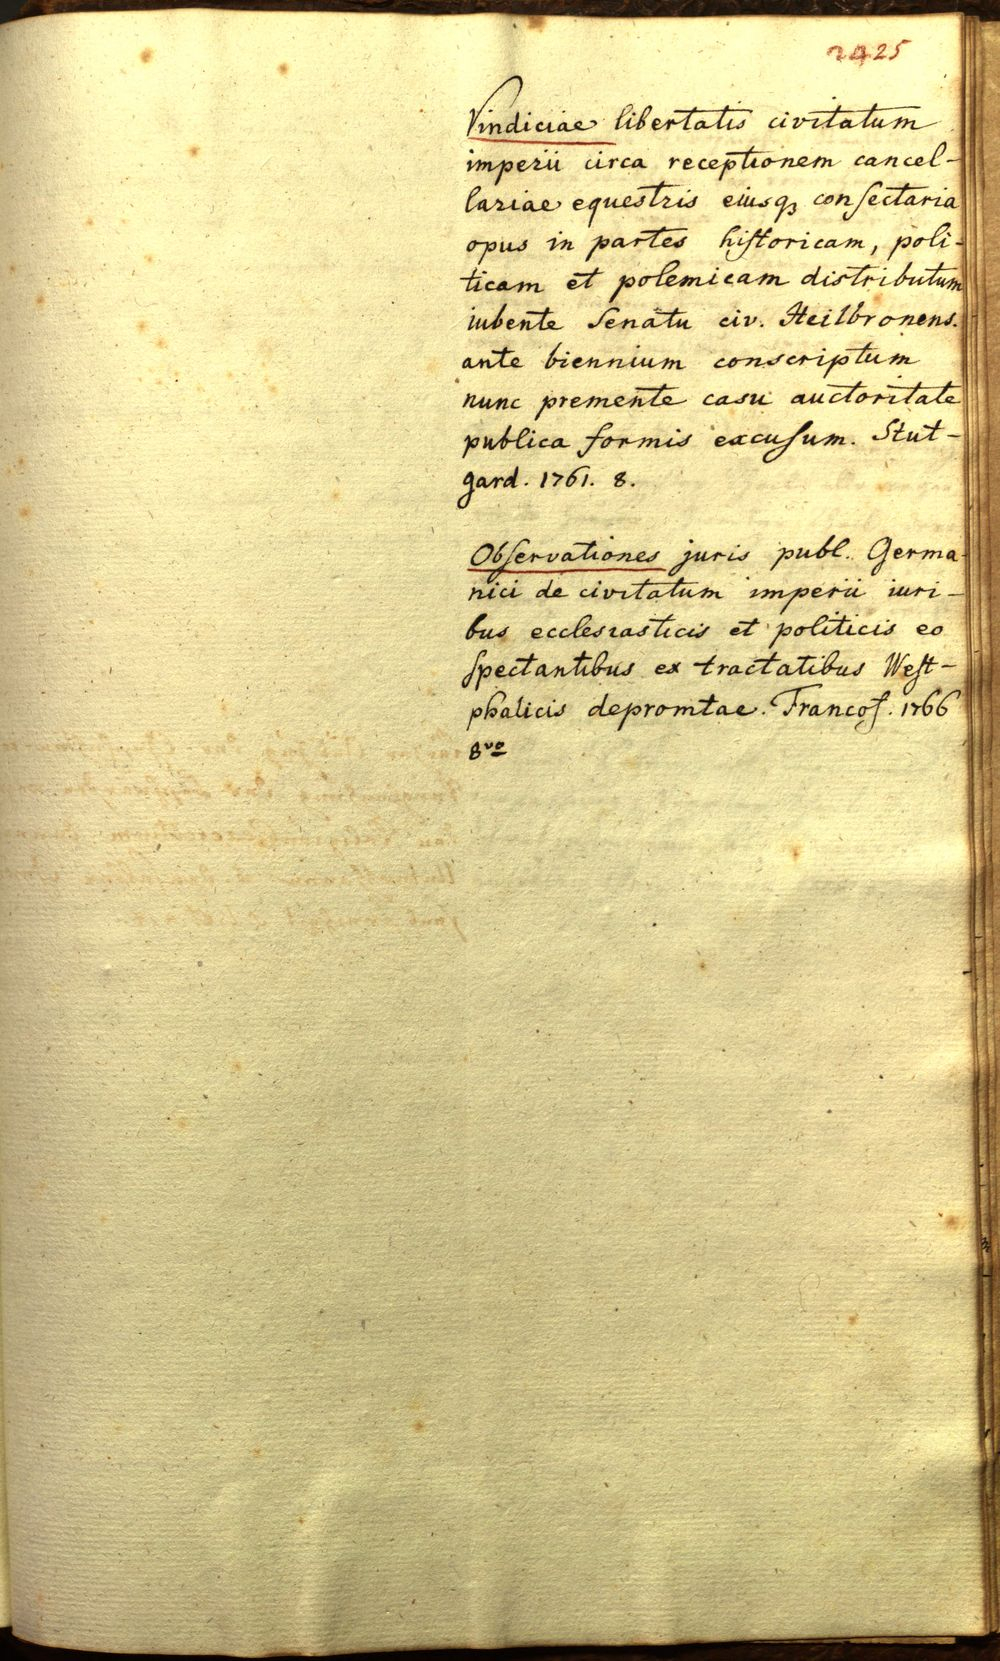 2425
Vindiciae libertatis civitatum
imperii circa receptionem cancel-
lariae equestris eiusq₃ consectaria
opus in partes historicam, poli-
ticam et polemicam distributum
iubente Senatu civ. Heilbronens.
ante biennium conscriptum
nunc premente casu auctoritate
publica formis excusum. Stut-
gard. 1761. 8.
Observationes juris publ. Germa-
nici de civitatum imperii iuri-
bus ecclesiasticis et politicis eo
spectantibus ex tractatibus West-
phalicis depromtae. Francof. 1766
8vo